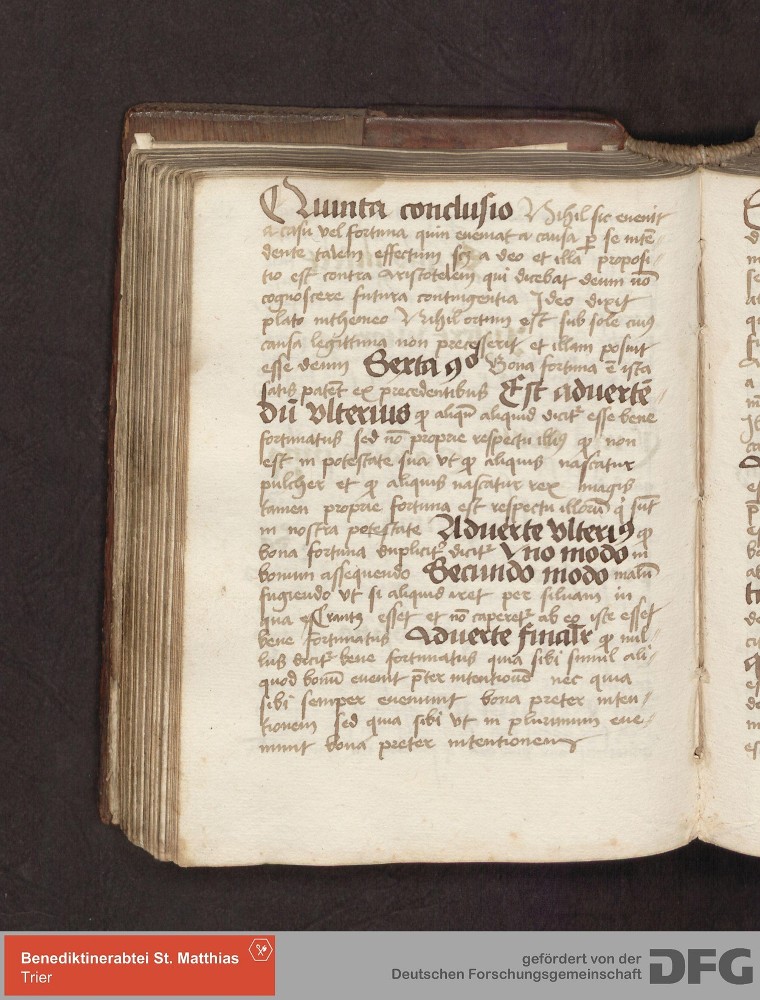 Quinta conclusio Nihil sic euenit
a casu vel fortuna quin eueniat a causa p̱ se intē-
dente talem effectum scꝫ a deo et illa proposi-
tio est contra Aristotelem qui dicebat deum nō
cognoscere futura contingentia Ideo dixit
plato in themeo Nihil ortum est sub sole cuiꝰ
causa legittima non precesserit et illam posuit
esse deum Sexta ꝯᵒ Bona fortuna ē ista
satis patēt ex precedentibus Est aduertē-
dū vlterius ꝙ aliqn̄ aliquid dicit᷑ esse bene
fortunatus sed nō proprie respectu illiꝰ ꝙ non
est in potestate sua vt ꝙ aliquis nascatur
pulcher et ꝙ aliquis nascatur rex magis
tamen proprie fortuna est respectu illorū q̇ sūt
in nostra potestate Aduerte vlteriꝰ ꝙ
bona fortuna duplicit᷑ dicit᷑ Vno modo in
bonum assequendo Secundo modo malū
fugiendo vt si aliquis iret per siluam in
qua esset et nō caperet᷑ ab eo iste esset
bene fortunatus Aduerte finalr̄ ꝙ nul-
lus dicit᷑ bene fortunatus quia sibi simul ali-
quod bonū euenit p̄ter intentionē nec quia
sibi semper eueniunt bona preter inten-
tionem sed quia sibi vt in plurimum eue-
niunt bona preter intentionem
Benediktinerabtei St. Matthias
Trier
gefördert von der
Deutschen Forschungsgemeinschaft DFG